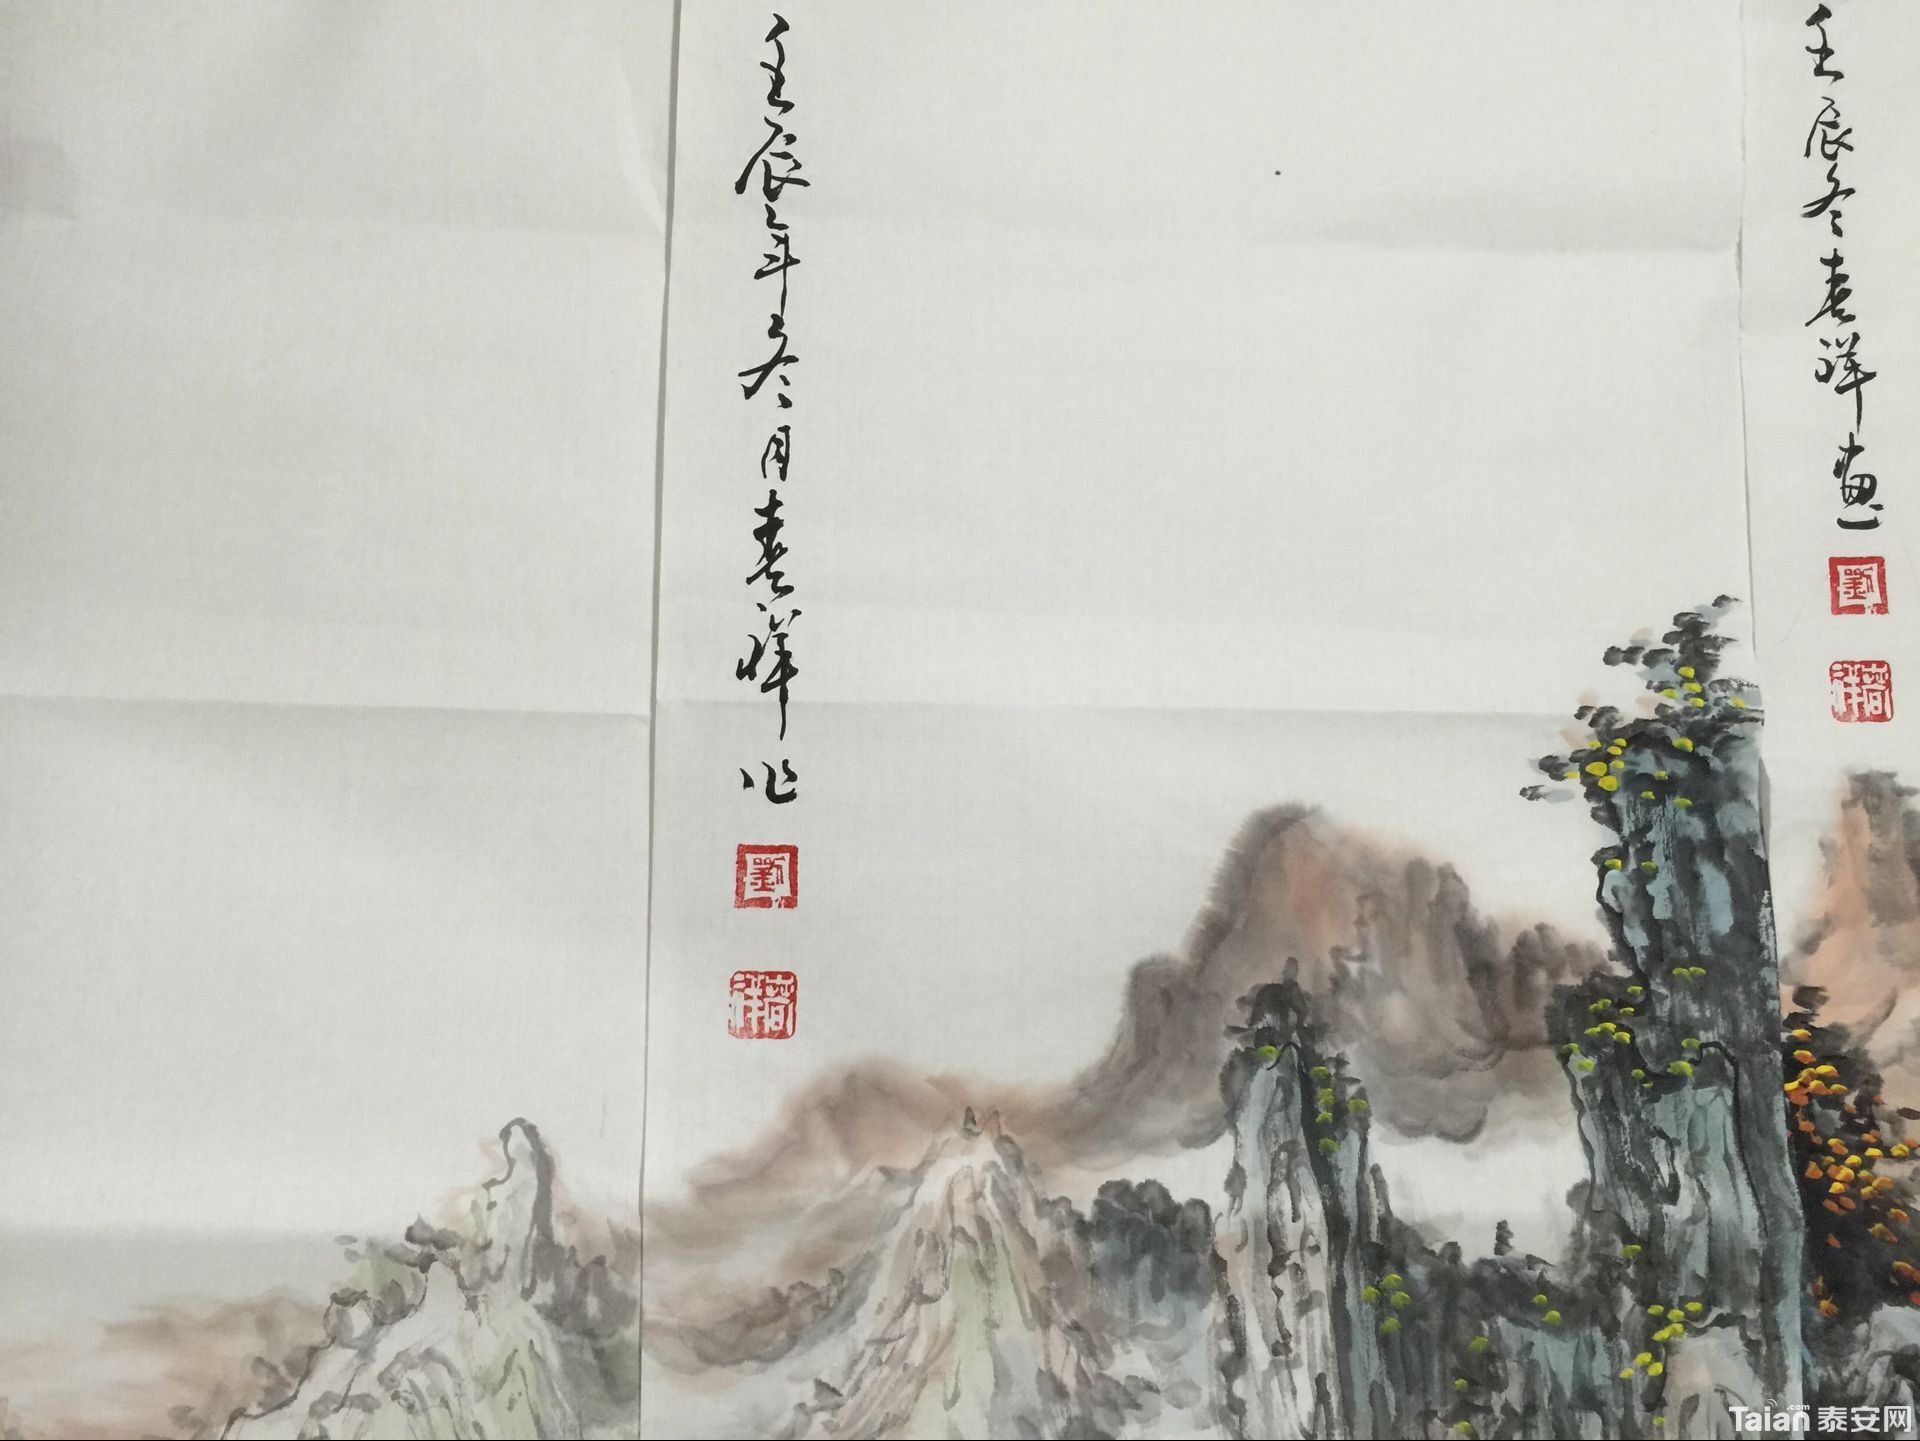 壬辰冬春祥画
劉
春祥
壬辰年冬月春祥作
劉
春祥
Taian.com 泰安网